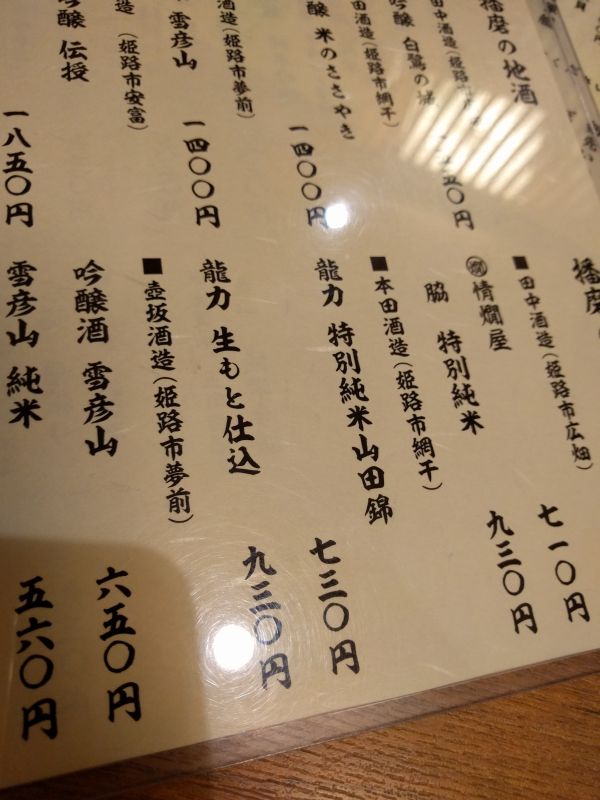 播磨の地酒
田中酒造(姫路市
吟醸 白鷺の城 五〇円
田酒造(姫路市網干)
醸 米のささやき 一四〇〇円
酒造(姫路市夢前)
雪彦山 一四〇〇円
(姫路市安富)
吟醸 伝授 一八五〇円
播磨
■田中酒造(姫路市広畑)
情燗屋 七一〇円
脇 特別純米 九三〇円
■本田酒造(姫路市網干)
龍力 特別純米山田錦 七三〇円
龍力 生もと仕込 九三〇円
■壺坂酒造(姫路市夢前)
吟醸酒 雪彦山 六五〇円
雪彦山 純米 五六〇円